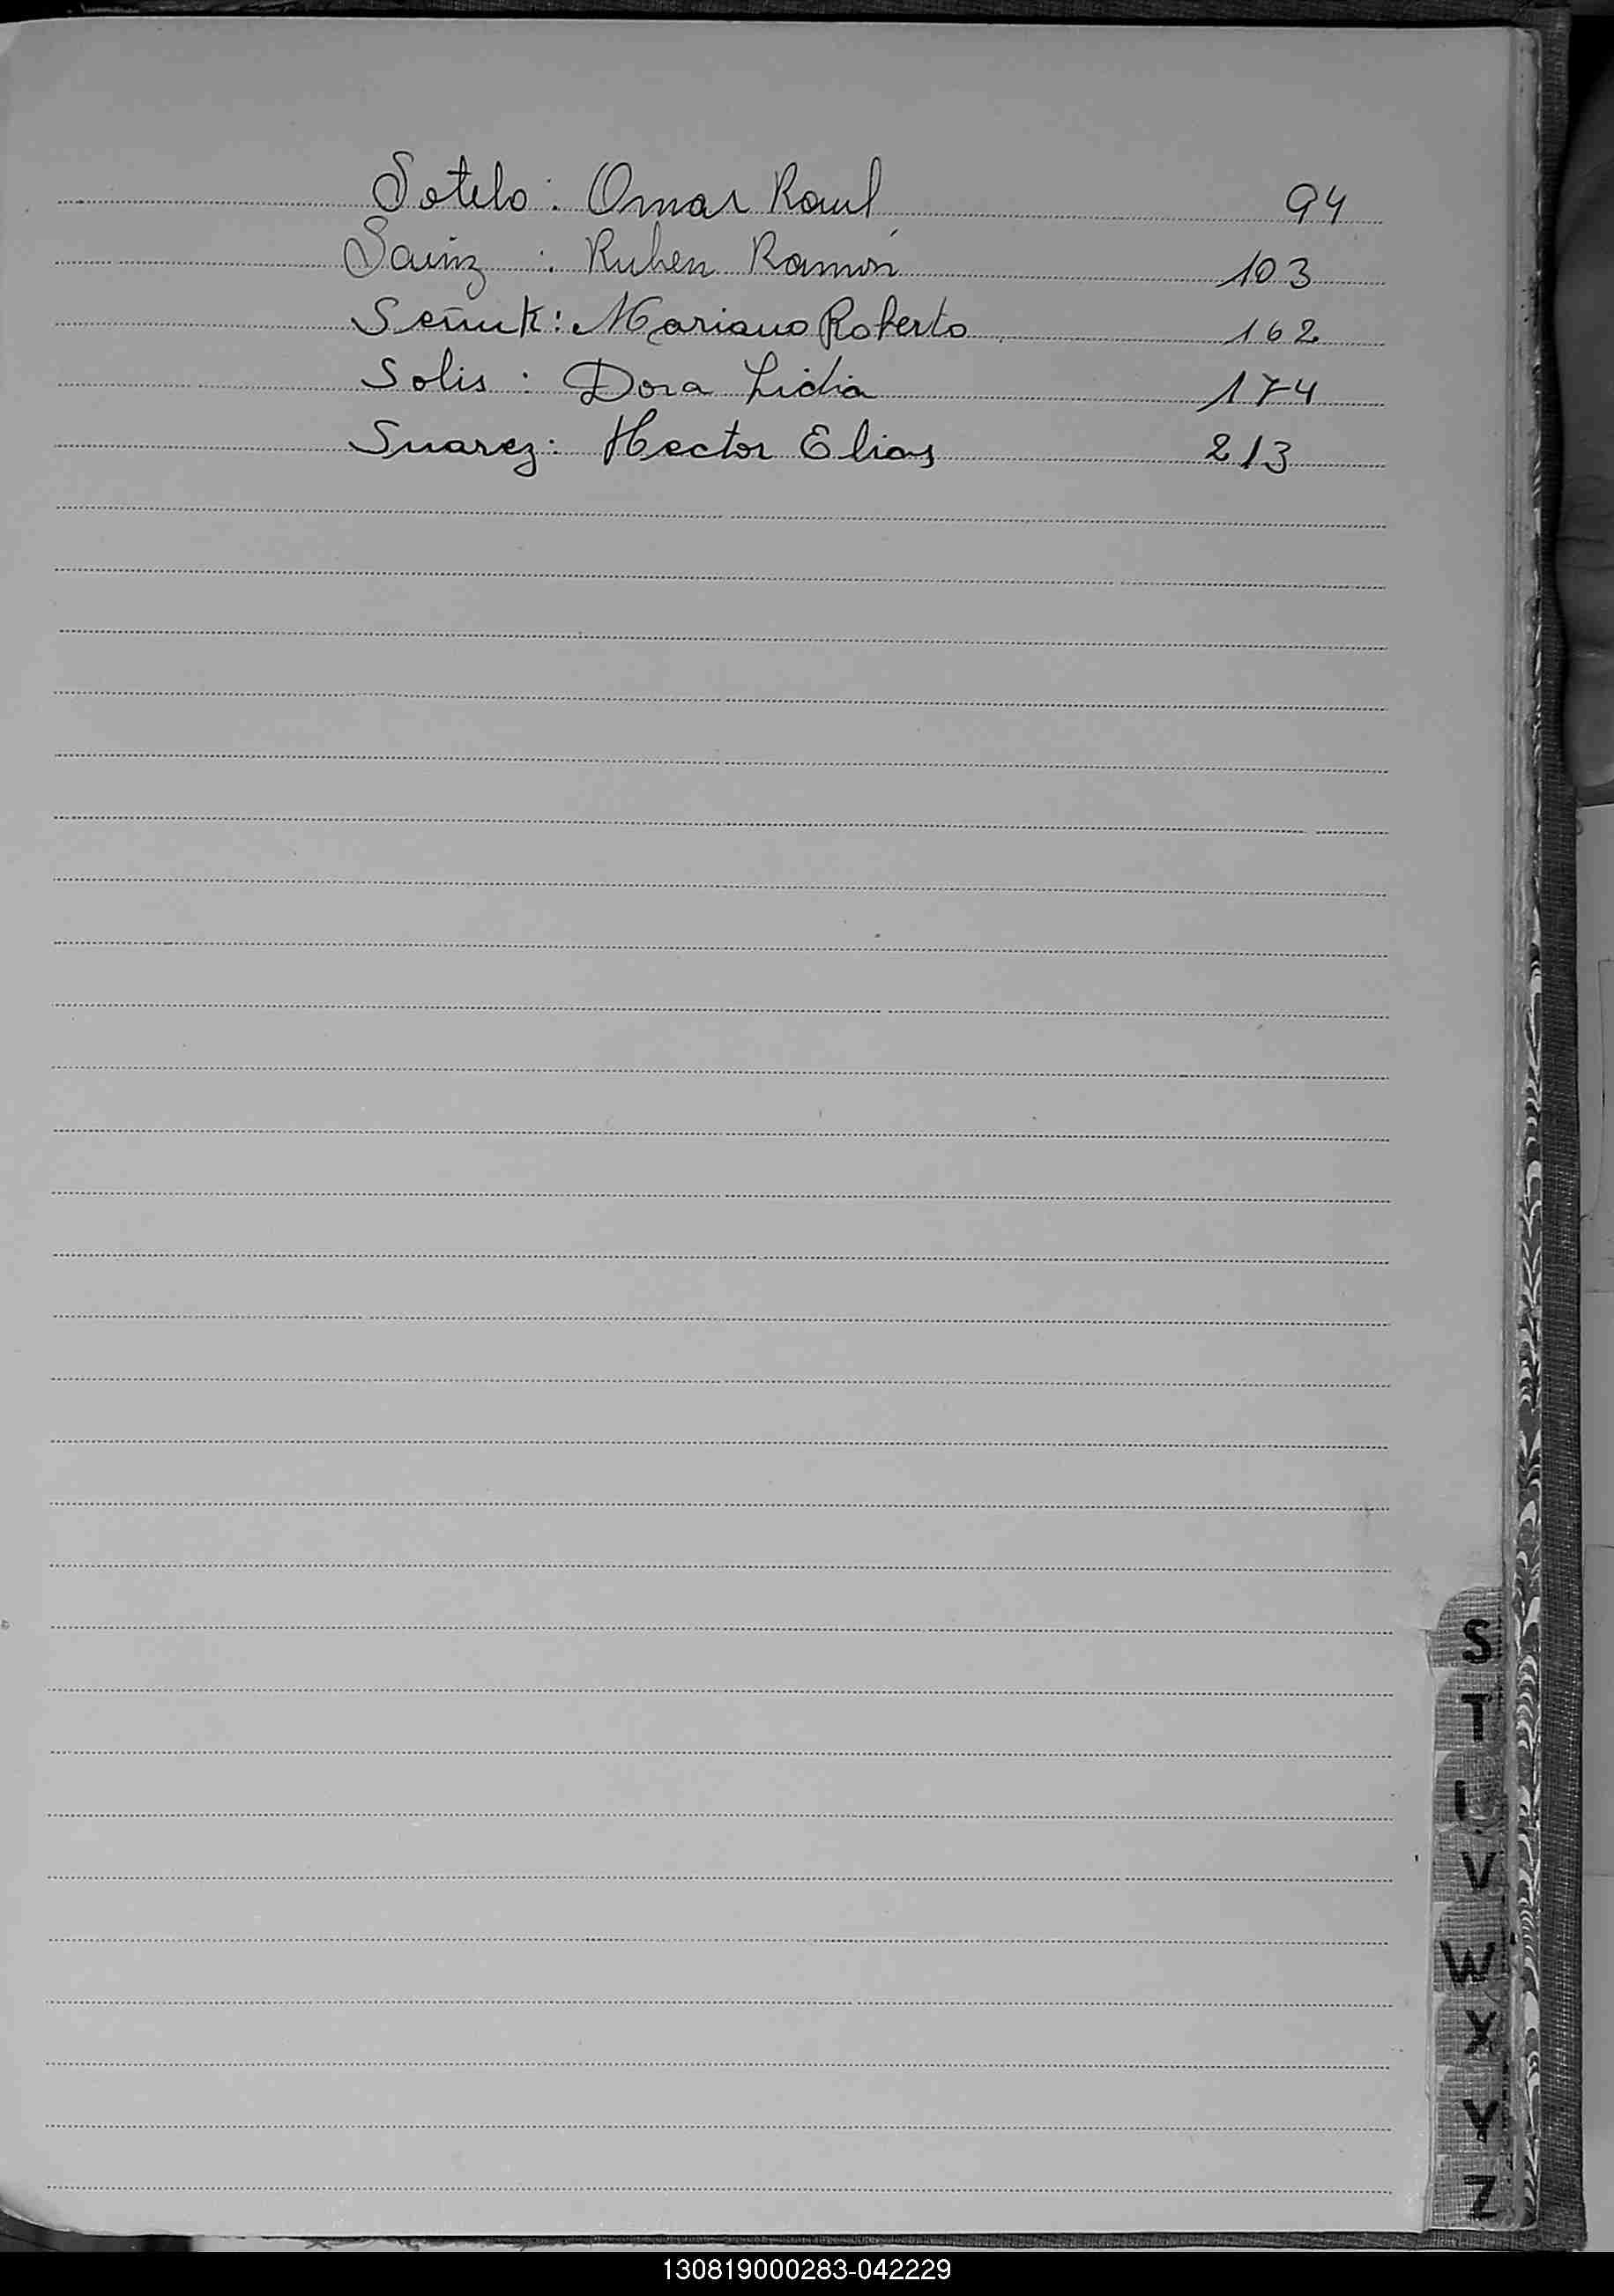 Sotelo: Omar Raul 94
Sainz : Ruben Ramón 103
Mariano Roberto 162
Solis : Dora Lidia 174
Suarez: Hector Elias 213
S
T
V
W
X
Y
Z
130819000283-042229